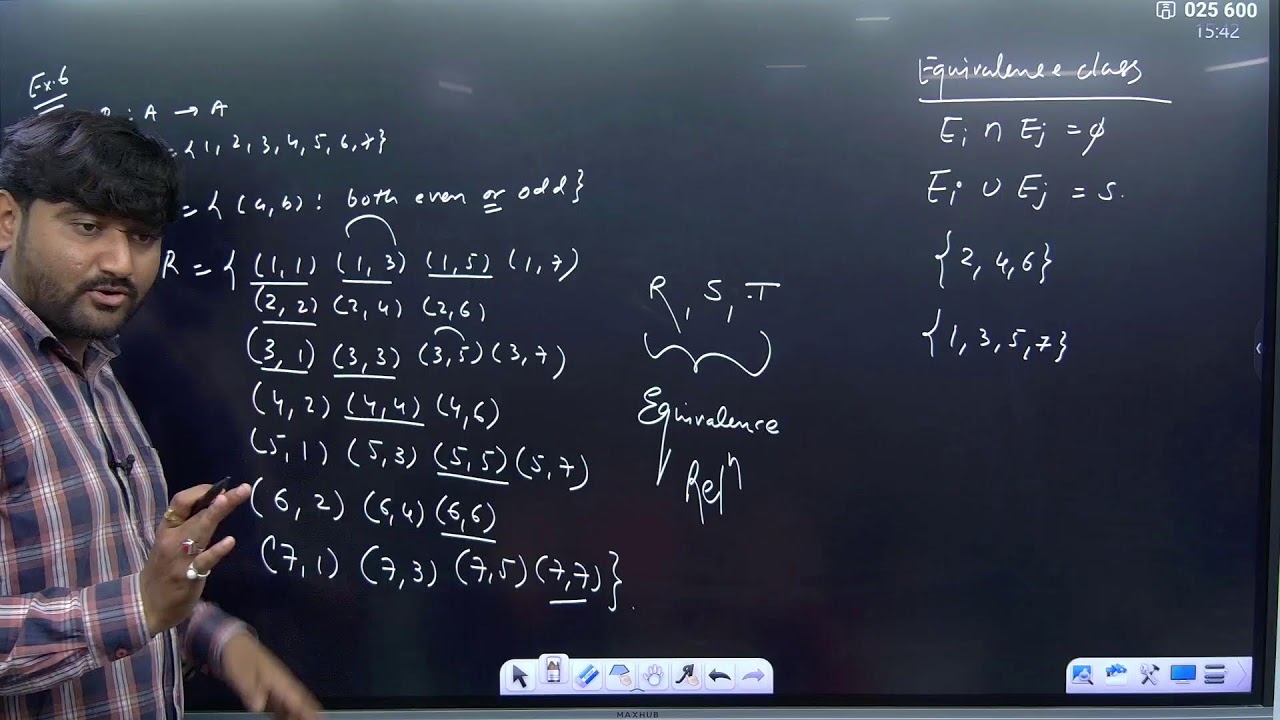 025 600
15:42
Ex.6
: A → A
= {1, 2, 3, 4, 5, 6, 7}
= { (a, b) : both even or odd}
R = { (1, 1) (1, 3) (1, 5) (1, 7)
(2, 2) (2, 4) (2, 6)
(3, 1) (3, 3) (3, 5) (3, 7)
(4, 2) (4, 4) (4, 6)
(5, 1) (5, 3) (5, 5) (5, 7)
(6, 2) (6, 4) (6, 6)
(7, 1) (7, 3) (7, 5) (7, 7) }.
R, S, T
Equivalence
Relⁿ
Equivalence class
Ei ∩ Ej = ϕ
Ei ∪ Ej = S.
{2, 4, 6}
{1, 3, 5, 7}
MAXHUB